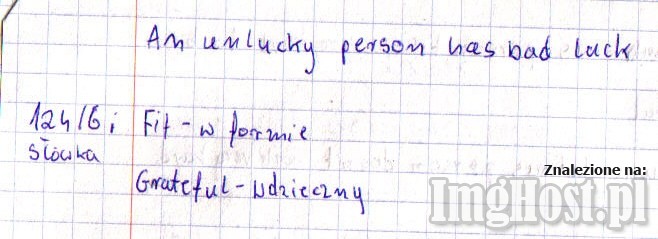 An unlucky person has bad luck
124/6; Fit - w formie
słówka
Grateful - wdzieczny
Znalezione na:
ImgHost.pl